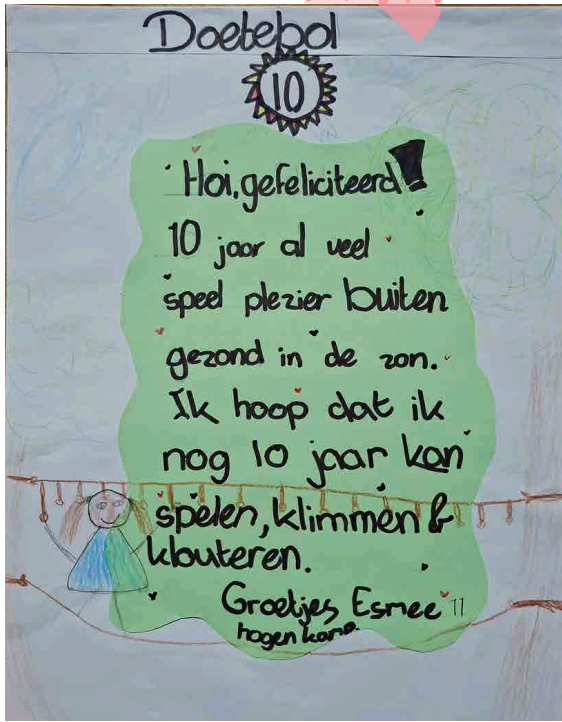 Doetebol
10
Hoi, gefeliciteerd!
10 jaar al veel
speel plezier buiten
gezond in de zon.
Ik hoop dat ik
nog 10 jaar kan
spelen, klimmen &
klouteren.
Groetjes Esmee 11
hogen kamp.